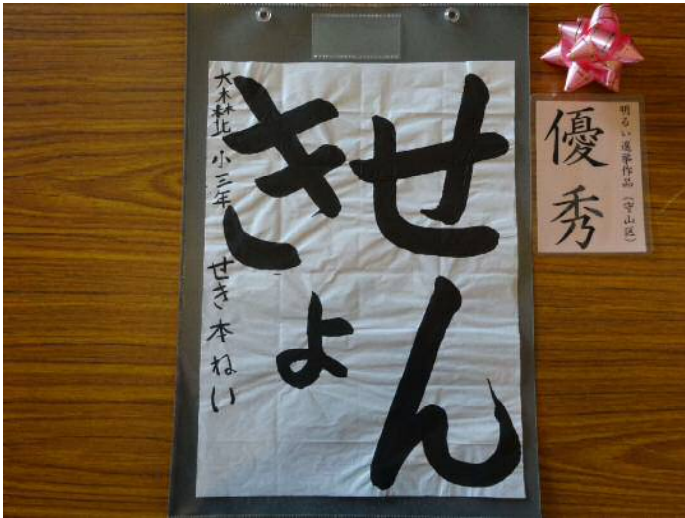 せん
きょ
大森北小三年 せき本ねい
明るい選挙作品(守山区)
優秀